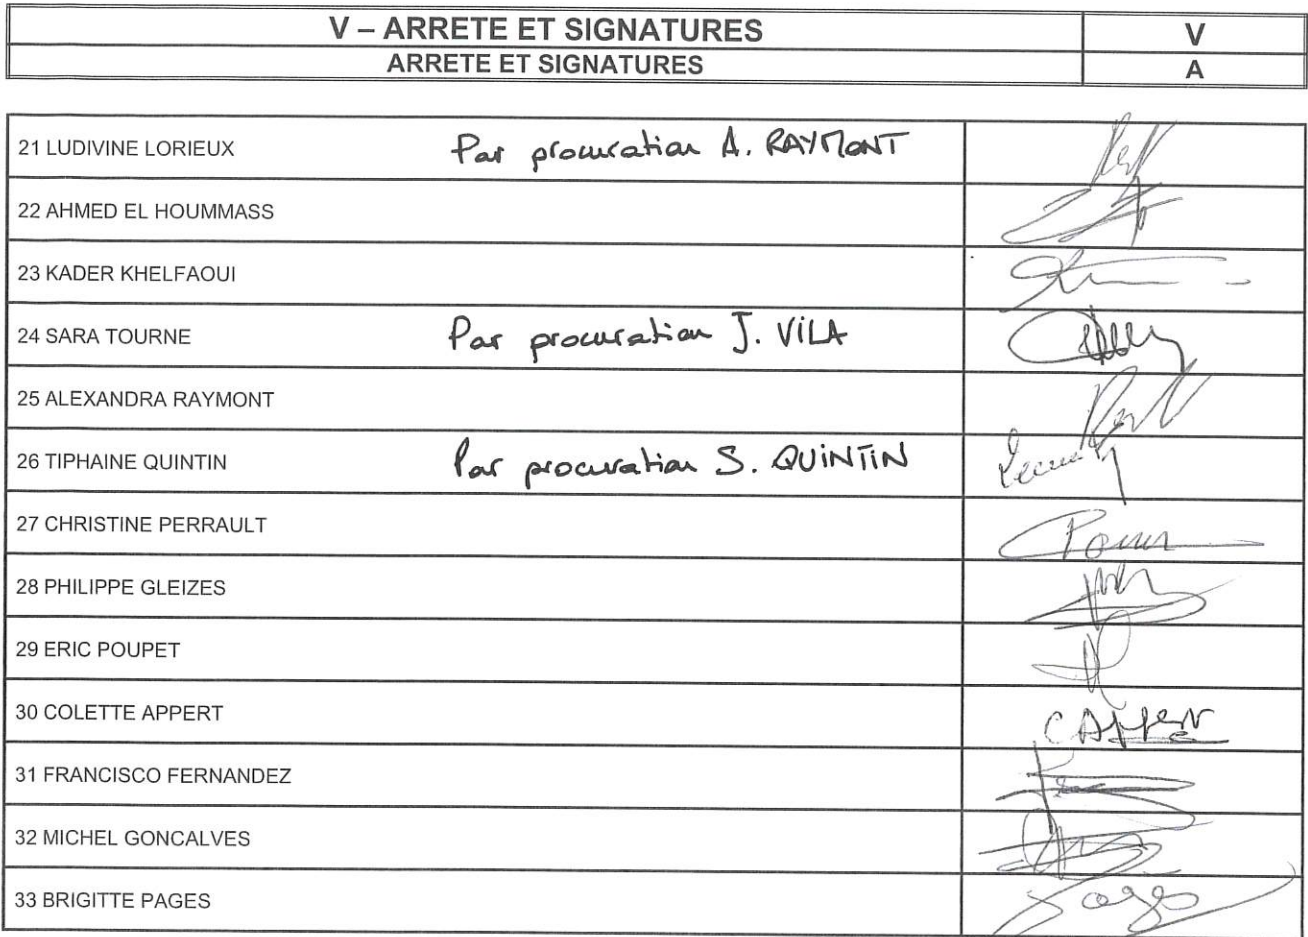 V – ARRETE ET SIGNATURES V
ARRETE ET SIGNATURES A
21 LUDIVINE LORIEUX Par procuration A. RAYMONT
22 AHMED EL HOUMMASS
23 KADER KHELFAOUI
24 SARA TOURNE Par procuration J. VILA
25 ALEXANDRA RAYMONT
26 TIPHAINE QUINTIN Par procuration S. QUINTIN
27 CHRISTINE PERRAULT
28 PHILIPPE GLEIZES
29 ERIC POUPET
30 COLETTE APPERT
31 FRANCISCO FERNANDEZ
32 MICHEL GONCALVES
33 BRIGITTE PAGES